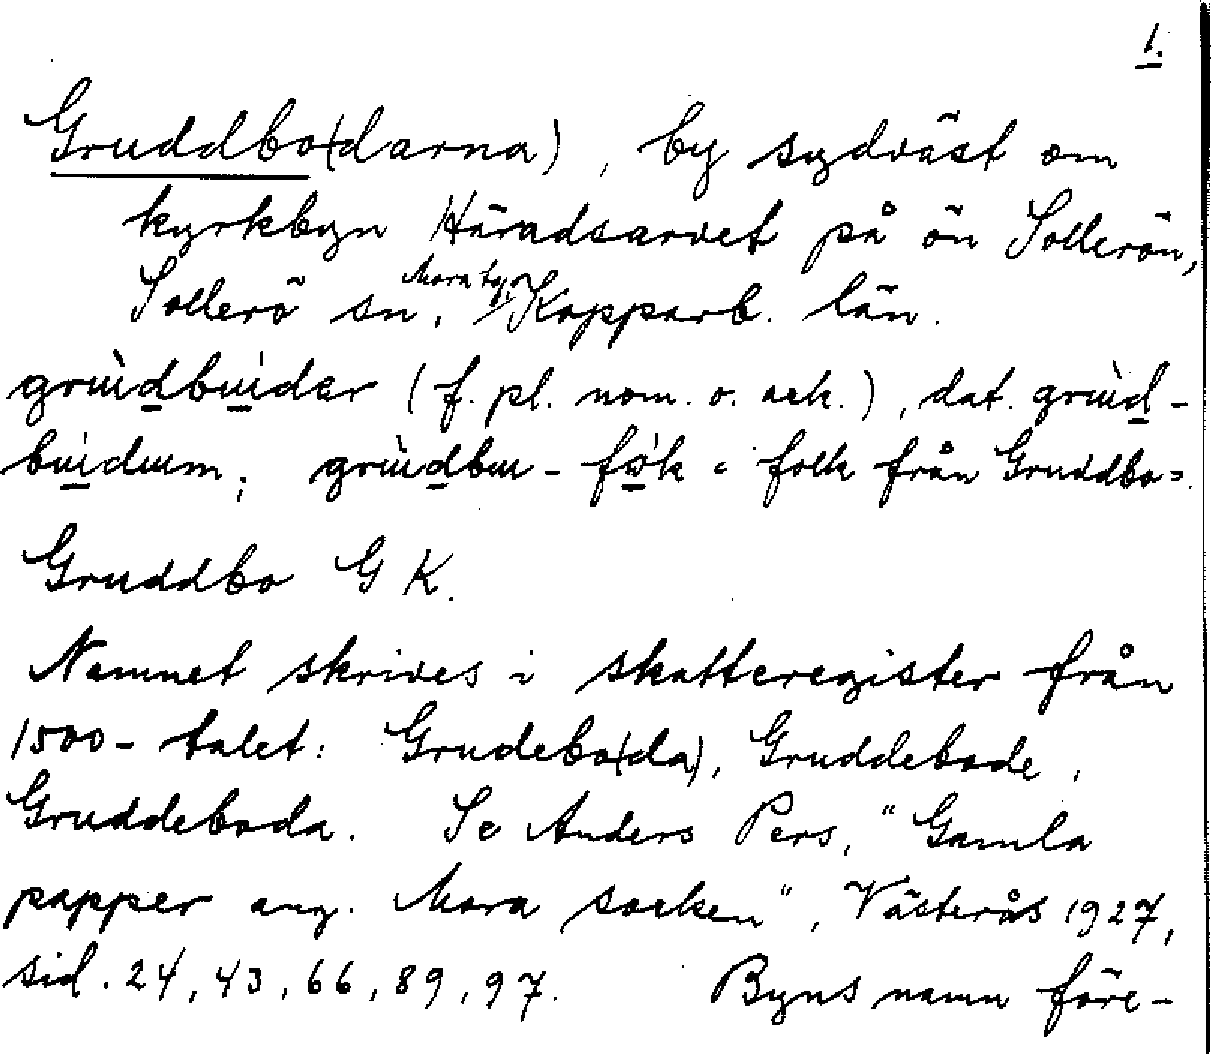 1.
Gruddbo(darna), by sydväst om
kyrkbyn Häradsarvet på ön Sollerön,
Sollerö sn, Mora tgs Kopparb. län.
grùidbùider (f. pl. nom. o. ack.), dat. grùid-
bùidum; grùidbu-fòk = folk från Gruddbo-.
Gruddbo GK.
Namnet skrives i skatteregister från
1500-talet: Grudebo(da), Gruddebode,
Gruddeboda. Se Anders Pers, "Gamla
papper ang. Mora socken", Västerås 1927,
sid. 24, 43, 66, 89, 97. Byns namn före-